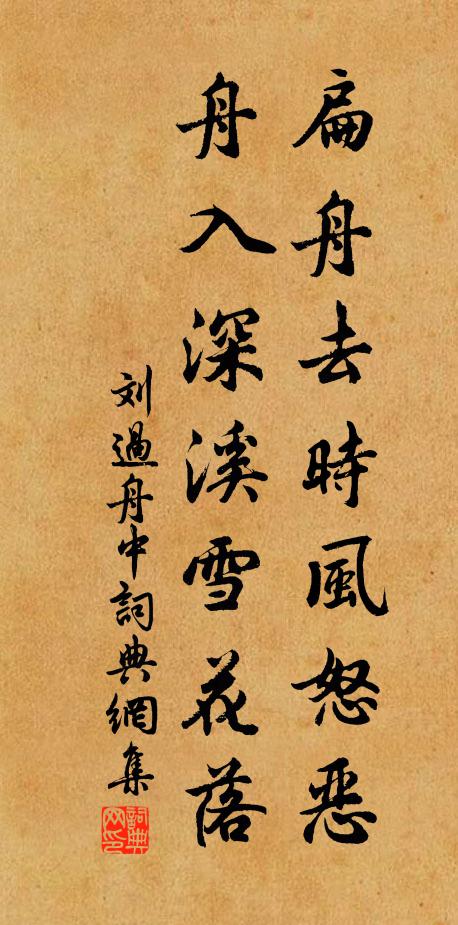 扁舟去時風怒惡
舟入深溪雪花落
刘過舟中詞典網集
詞典网印